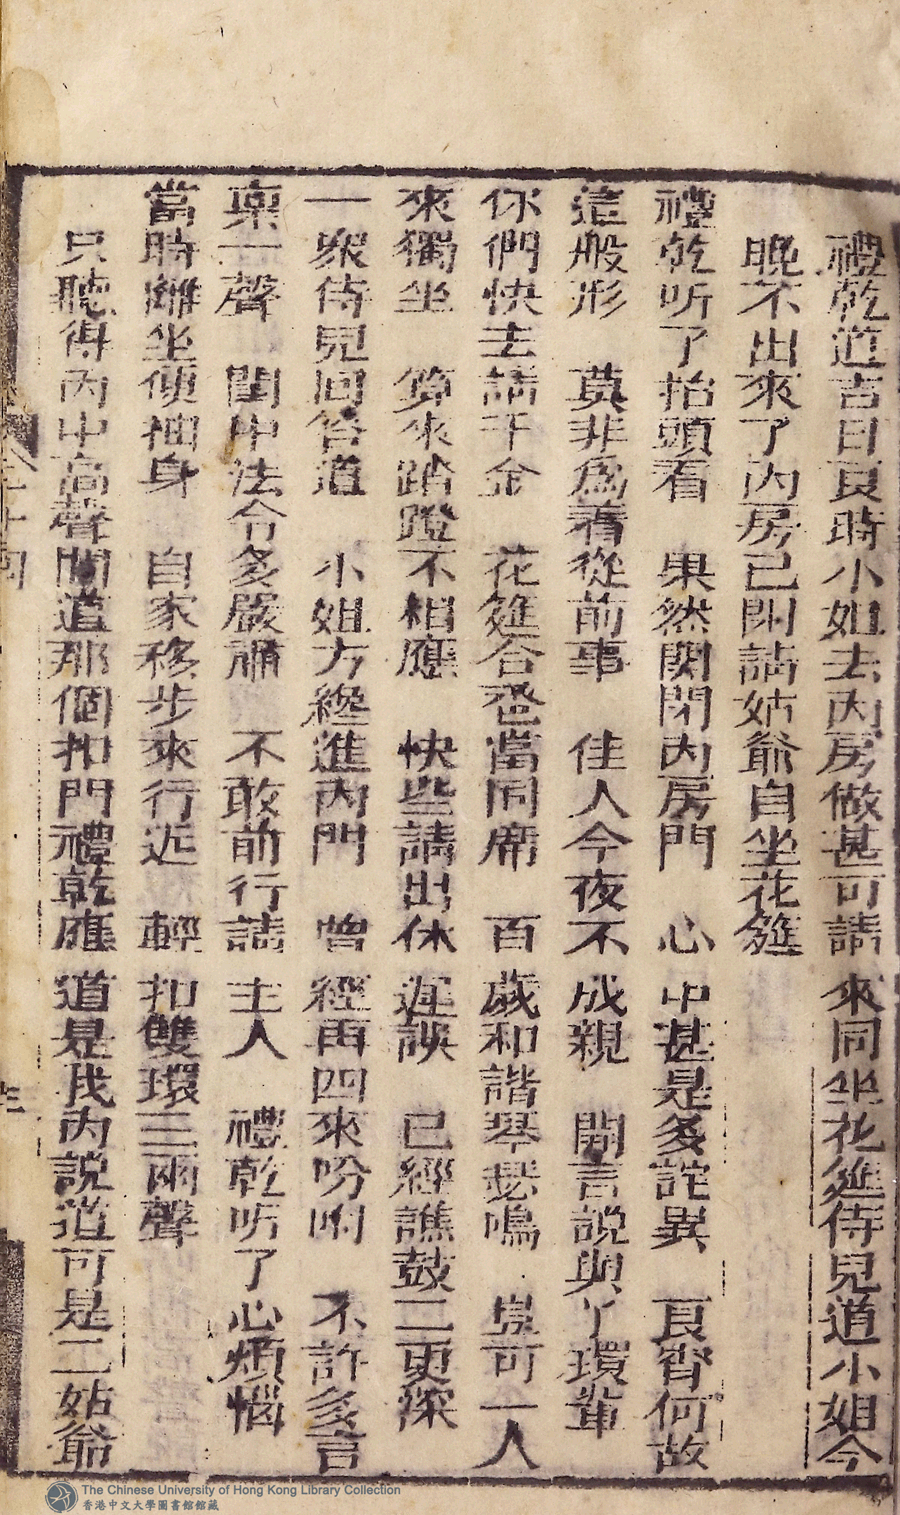 禮乾道吉日良時小姐去內房做甚可請來同坐花筵侍兒道小姐今
晚不出來了內房已閉請姑爺自坐花筵
禮乾听了抬頭看　果然関閉內房門　心中甚是多詫異　良宵何故
這般形　莫非爲着從前事　佳人今夜不成親　開言說與丫環輩
你們快去請千金　花筵合卺當同席　百歲和諧琴瑟鳴　豈可一人
來獨坐　算來踏蹬不相應　快些請出休遲誤　已經譙鼓二更深
一衆侍兒回答道　小姐方纔進內門　曾經再四來吩咐　不許多言
稟一聲　閨中法令多嚴肅　不敢前行請主人　禮乾听了心煩惱
當時離坐便抽身　自家移步來行近　輕扣雙環三兩聲
只聽得內中高聲問道那個扣門禮乾應道是我內說道可是二姑爺
The Chinese University of Hong Kong Library Collection
香港中文大學圖書館館藏